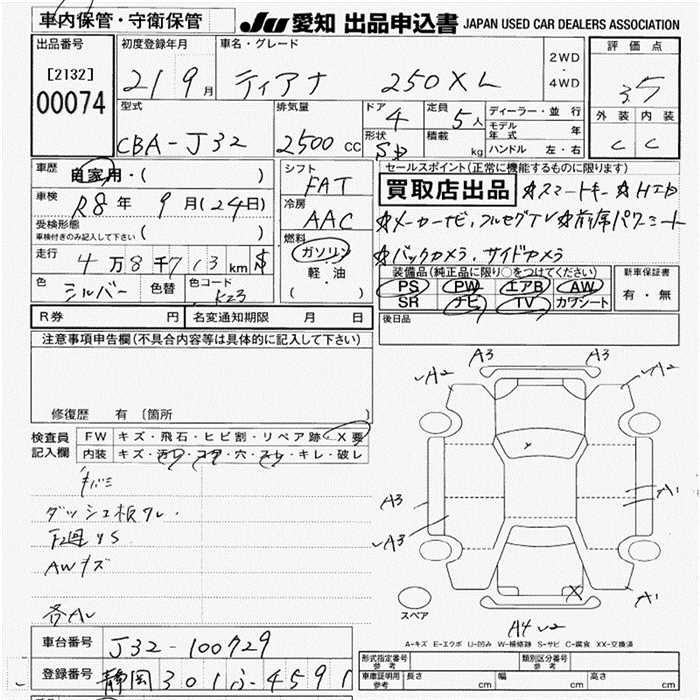 車内保管・守衛保管
JU 愛知 出品申込書 JAPAN USED CAR DEALERS ASSOCIATION
出品番号
[2132]
00074
初度登録年月
21 9月
車名・グレード
ティアナ 250XL
2WD
・
4WD
評価点
3.5
外装 内装
C C
型式
CBA-J32
排気量
2500 CC
ドア
4
定員
5人
形状
SD
積載
kg
ディーラー・並行
モデル年式 年
ハンドル 左・右
車歴
自家用・( )
車検
R8年 9月(24日)
受検形態
車検付きのみ記入して下さい ( )
走行
4万8千713km
色
シルバー
色替
色コード
K23
シフト
FAT
冷房
AAC
燃料
ガソリン
軽・油
( )
セールスポイント(正常に機能するものに限り)
買取店出品 ☆スマートキー ☆HID
☆メーカーナビ,フルセグTV ☆前席パワーシート
☆バックカメラ,サイドカメラ
装備品(純正品に限り○をつけてください)
PS PW エアB AW
SR ナビ TV カワシート
新車保証書
有・無
後日品
R券 円
名変通知期限 月 日
注意事項申告欄(不具合内容等は具体的に記入して下さい)
修復歴 有 〔箇所 〕
検査員
記入欄
FW キズ・飛石・ヒビ割・リペア跡・X要
内装 キズ・汚レ・コゲ・穴・スレ・キレ・破レ
ダッシュ板ワレ・
下廻りS
AWキズ
各AU
車台番号
J32-100729
登録番号
静岡 301 ふ 4591
A3 A3
A2 A2
A3
A3
A1
A1
X
A4 U2
スペア
A-キズ E-エクボ U-凹み W-補修跡 S-サビ C-腐食 XX-交換済
形式指定番号
参考
類別区分番号
参考
車庫証明用
参考
長さ cm
幅 cm
高さ cm